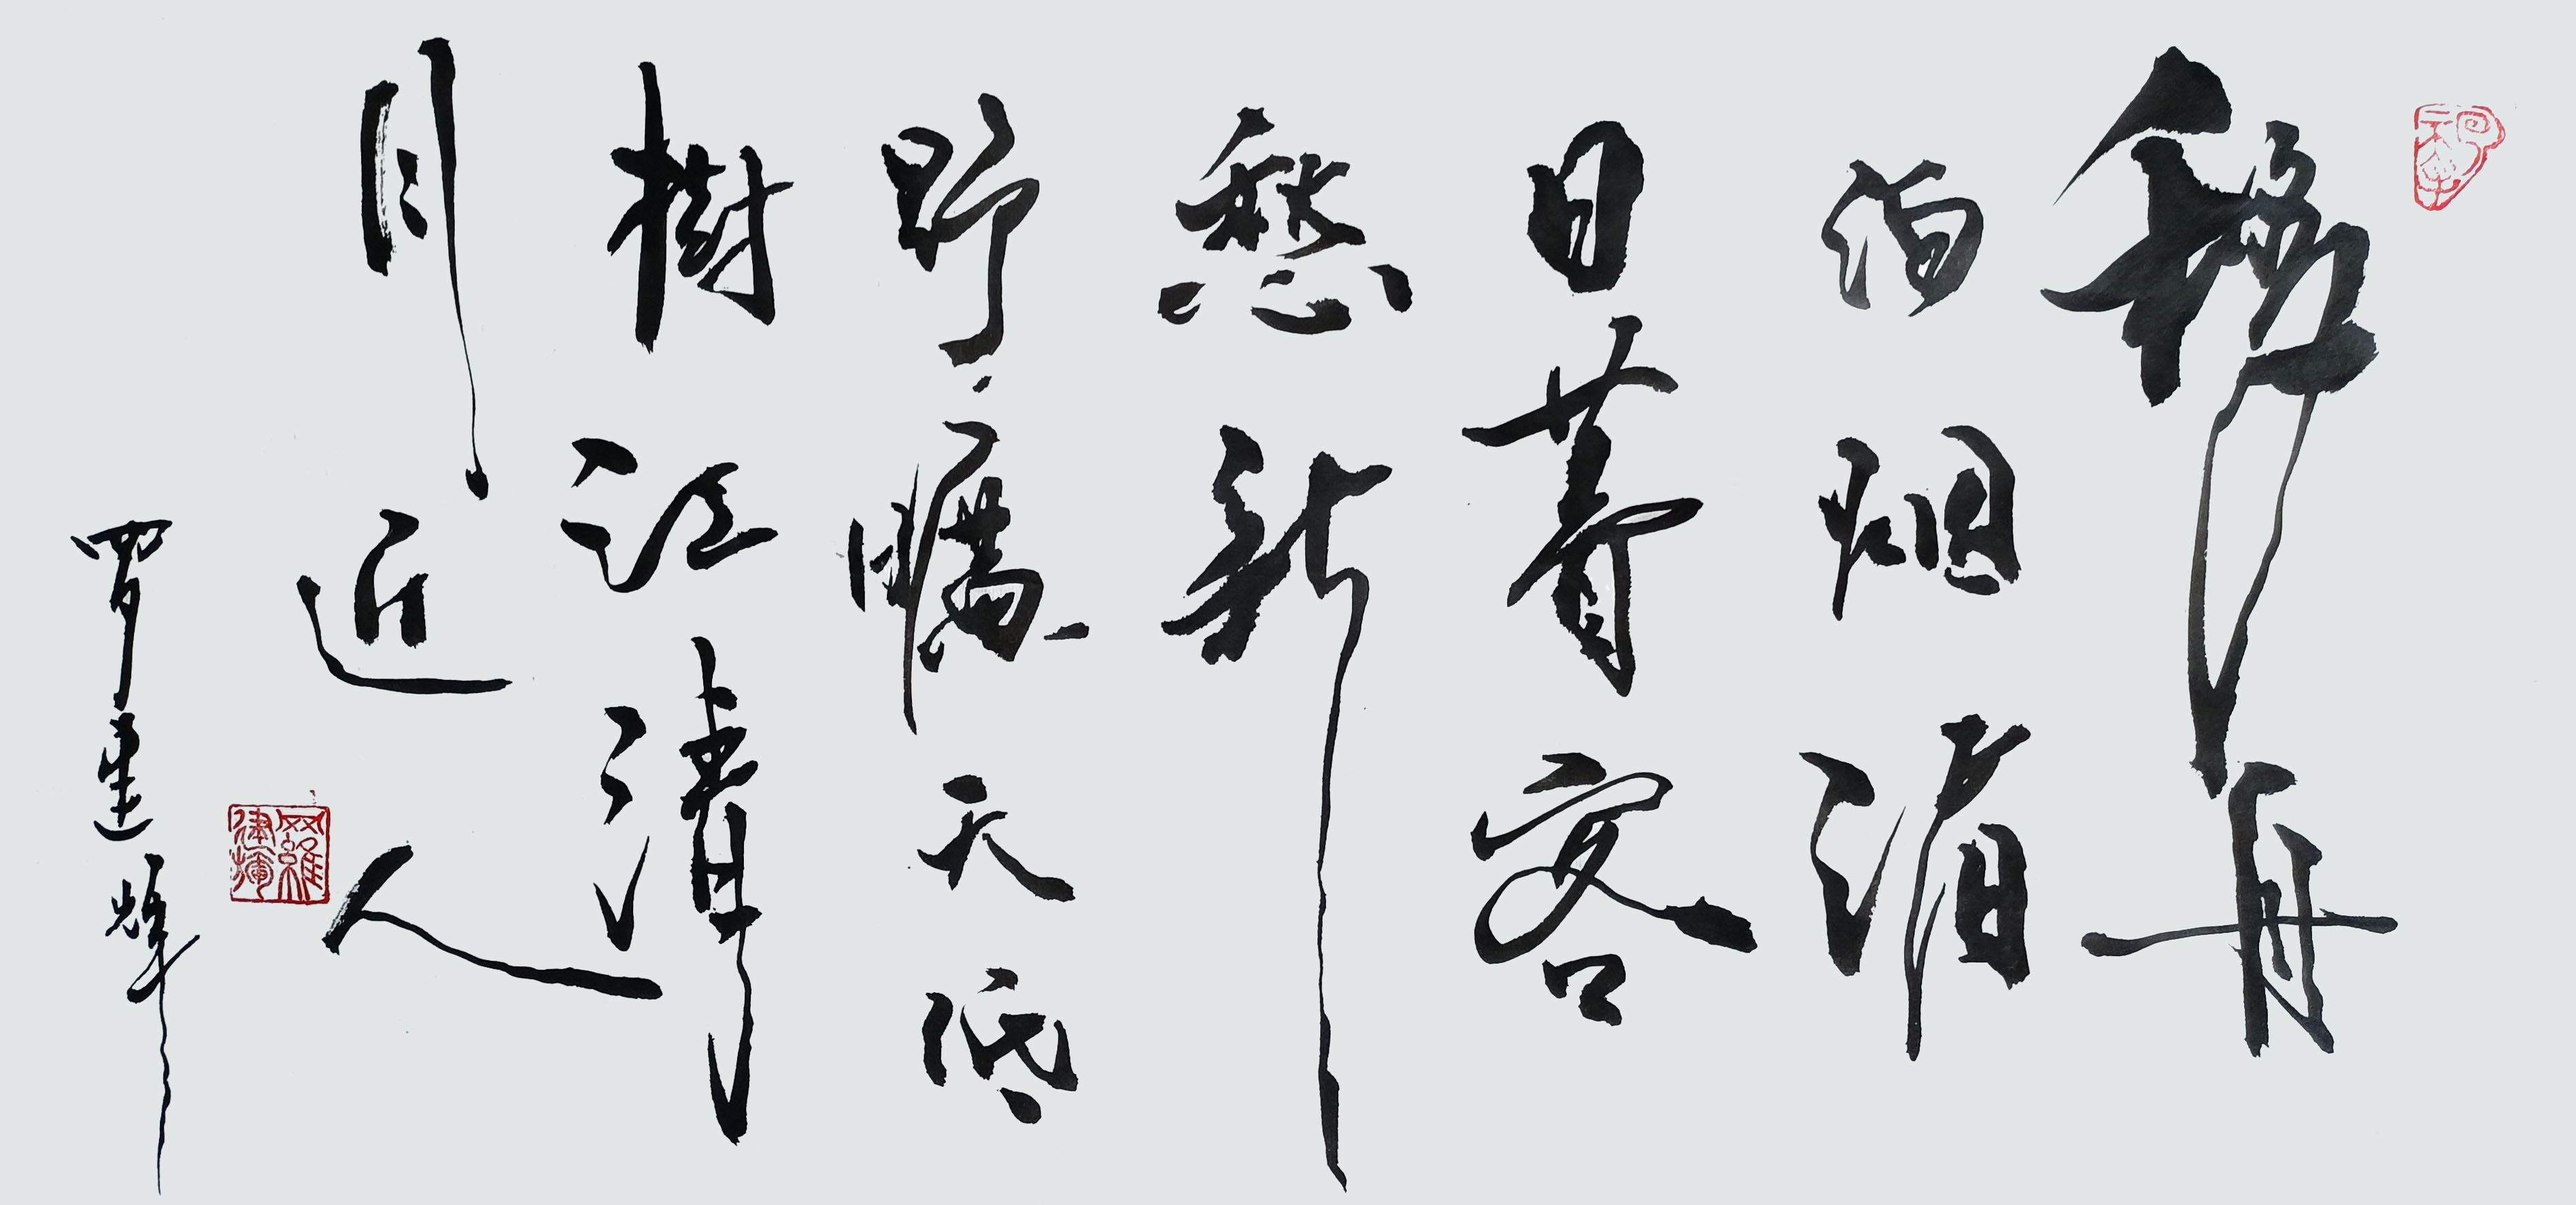 移舟
泊烟渚
日暮客
愁新
野曠天低
樹江清
月近人
罗建辉